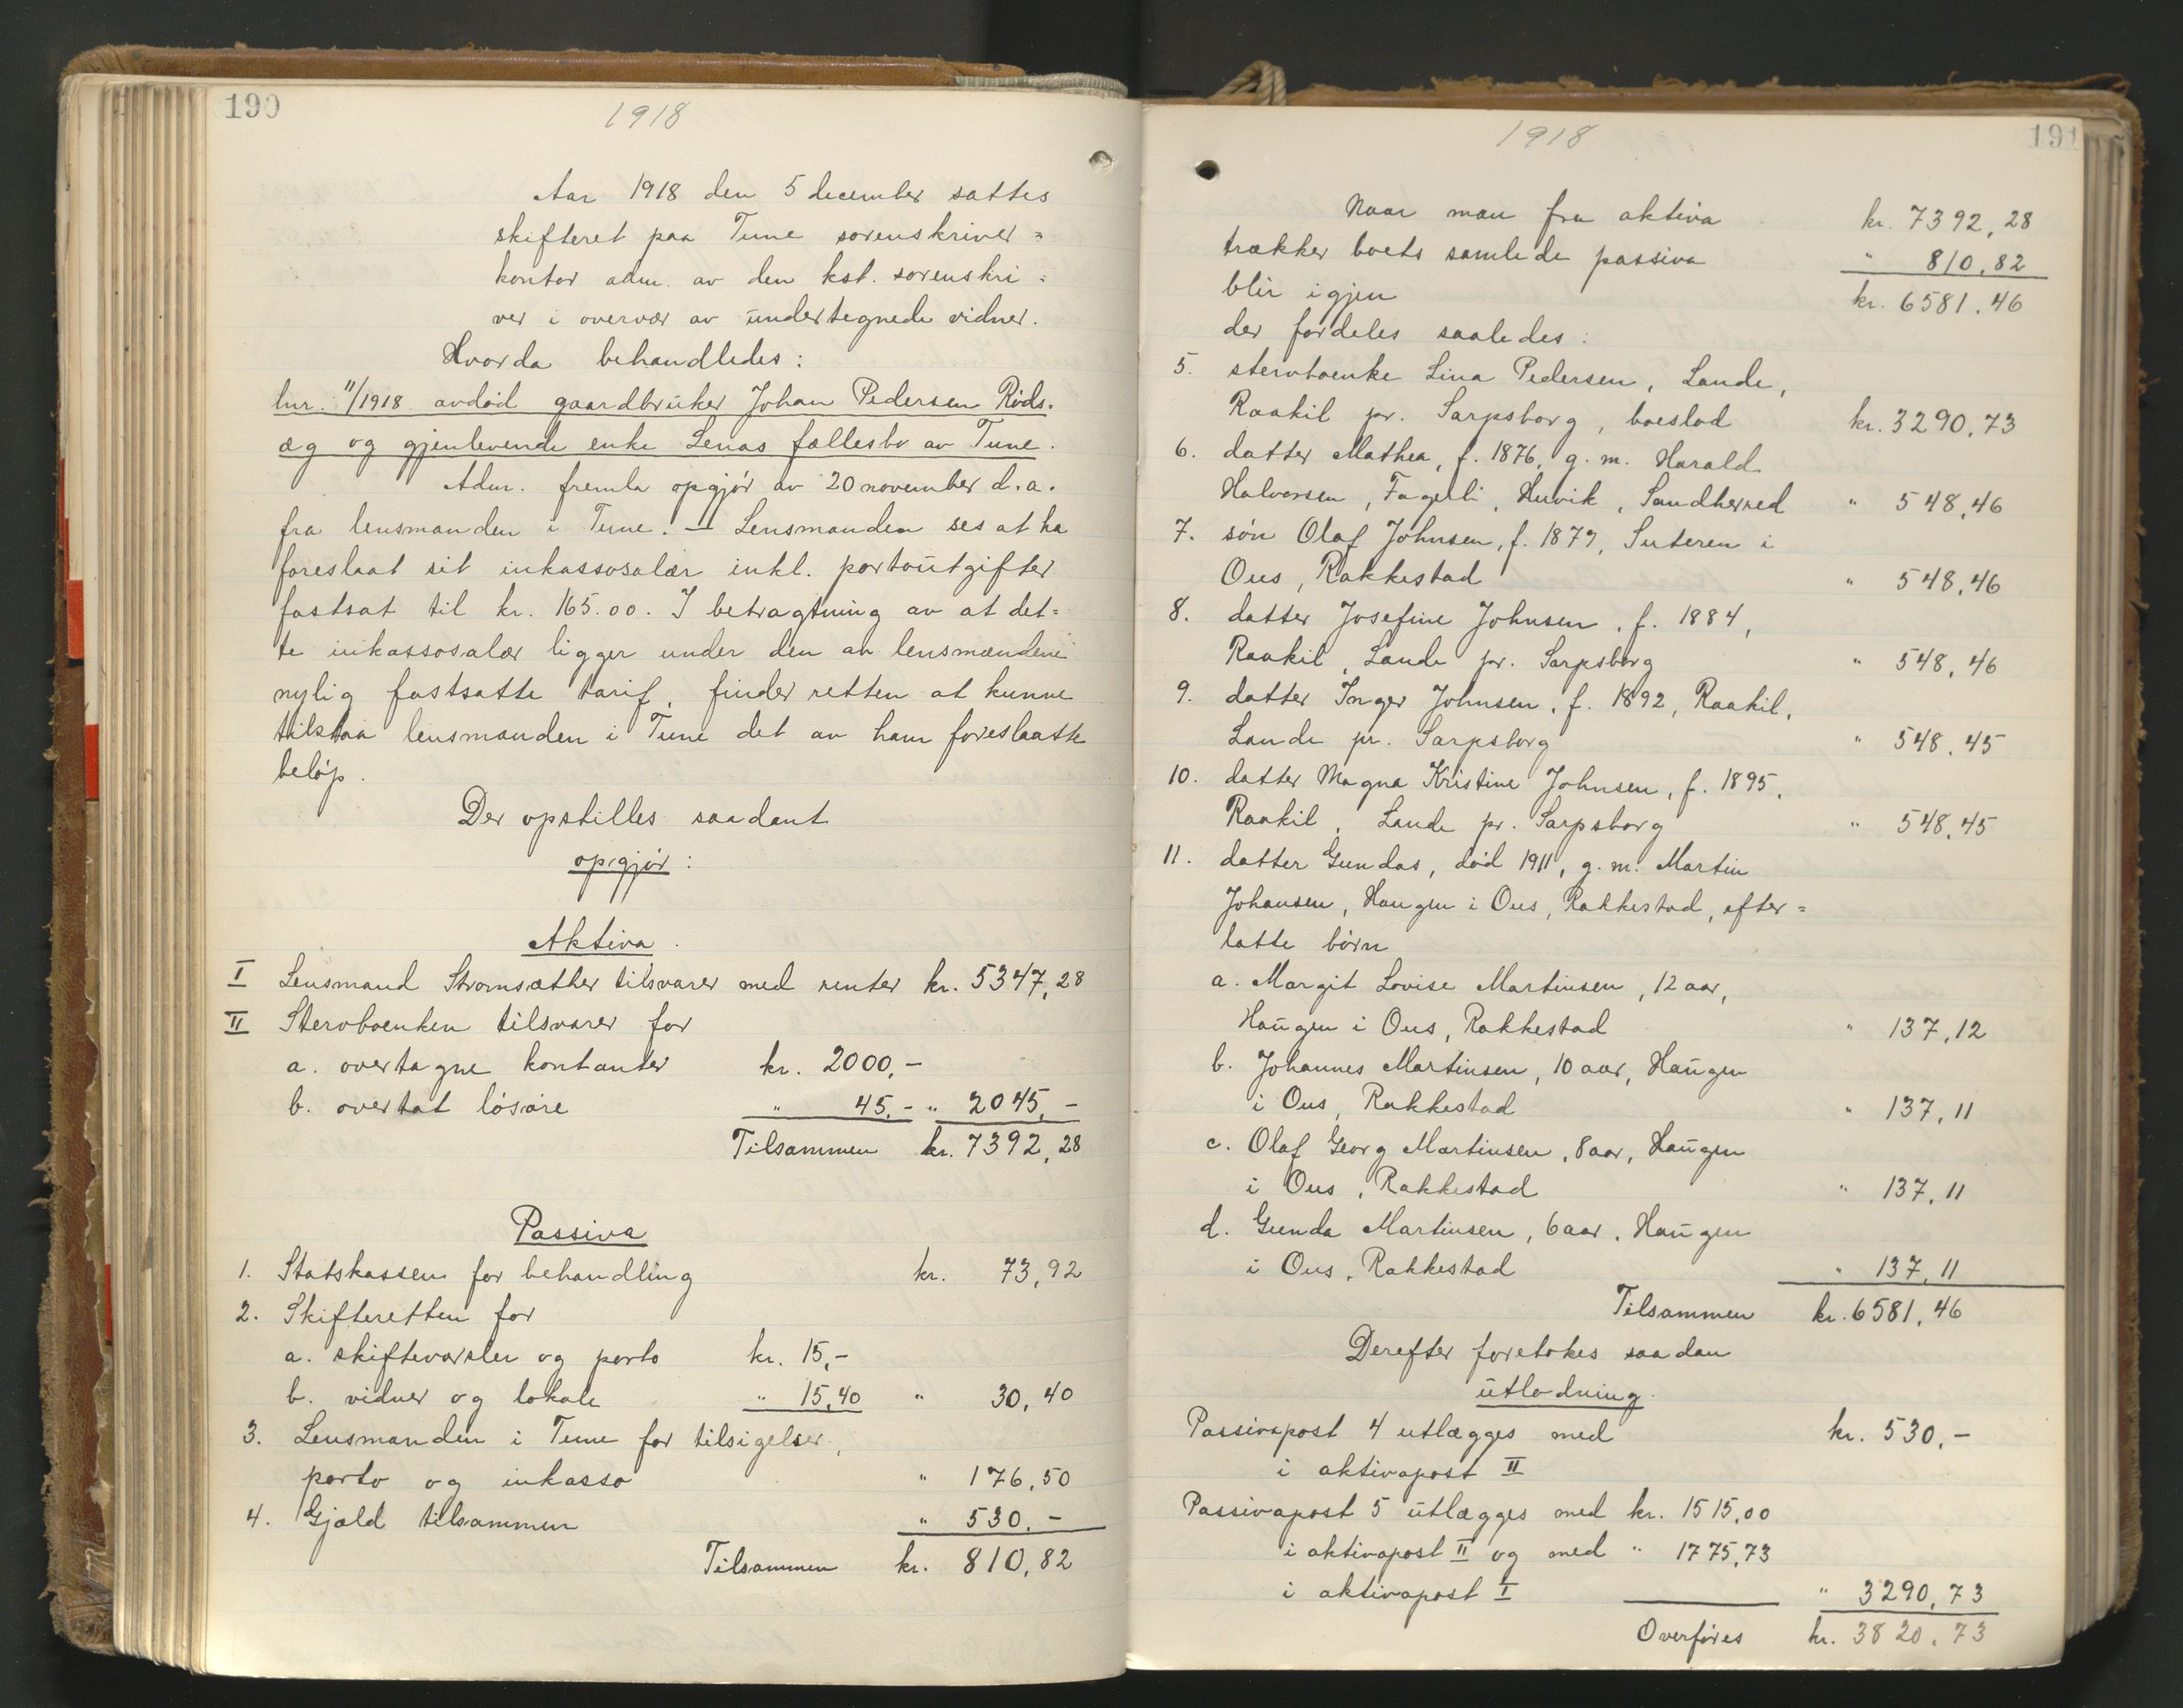 190
1918
Aar 1918 den 5 december sattes
skifteret paa Tune sorenskriver=
kontor adm. av den kst. sorenskri=
ver i overvær av undertegnede vidner.
Hvorda behandledes:
lnr. 11/1918 avdød gaardbruker Johan Pedersen Røds.
æg og gjenlevende enke Lenas fællesbo av Tune.
Adm. fremla opgjør av 20 november d.a.
fra lensmanden i Tune. – Lensmanden ses at ha
foreslaat sit inkassosalær inkl. portoutgifter
fastsat til kr. 165.00. I betragtning av at det=
te inkassosalær ligger under den av lensmændene
nylig fastsatte tarif, finder retten at kunne
tilstaa lensmanden i Tune det av ham foreslaatte
beløp.
Der opstilles saadant
opgjør:
Aktiva.
I Lensmand Strømsæther tilsvarer med renter kr. 5347,28
II Stervboenken tilsvarer for
a. overtagne kontanter kr. 2000,-
b. overtat løsøre " 45,- " 2045,-
Tilsammen kr. 7392,28
Passiva
1. Statskassen for behandling kr. 73,92
2. Skifteretten for
a. skiftevarsler og porto kr. 15,-
b. vidner og lokale " 15,40 " 30,40
3. Lensmanden i Tune for tilsigelser,
porto og inkasso " 176,50
4. Gjæld tilsammen " 530,-
Tilsammen kr. 810,82
191
1918
Naar man fra aktiva kr. 7392,28
trækker boets samlede passiva " 810,82
blir igjen kr. 6581,46
der fordeles saaledes:
5. stervboenke Lina Pedersen, Lande,
Raakil pr. Sarpsborg, boeslod kr. 3290,73
6. datter Mathea, f. 1876, g. m. Harald
Halvorsen, Fagerli, Huvik, Sandherred " 548,46
7. søn Olaf Johnsen, f. 1879, Suteren i
Ous, Rakkestad " 548,46
8. datter Josefine Johnsen, f. 1884,
Raakil, Lande pr. Sarpsborg " 548,46
9. datter Inger Johnsen, f. 1892, Raakil,
Lande pr. Sarpsborg " 548,45
10. datter Magna Kristine Johnsen, f. 1895,
Raakil, Lande pr. Sarpsborg " 548,45
11. datter Gundas, død 1911, g. m. Martin
Johansen, Haugen i Ous, Rakkestad, efter=
latte børn
a. Margit Lovise Martinsen, 12 aar,
Haugen i Ous, Rakkestad " 137,12
b. Johannes Martinsen, 10 aar, Haugen
i Ous, Rakkestad " 137,11
c. Olaf Georg Martinsen, 8 aar, Haugen
i Ous, Rakkestad " 137,11
d. Gunda Martinsen, 6 aar, Haugen
i Ous, Rakkestad " 137,11
Tilsammen kr. 6581,46
Derefter foretokes saadan
utlodning.
Passivapost 4 utlægges med kr. 530,-
i aktivapost II
Passivapost 5 utlægges med kr. 1515,00
i aktivapost II og med " 1775,73
i aktivapost I " 3290,73
Overføres kr. 3820,73